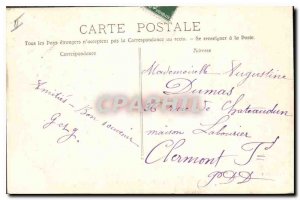 CARTE POSTALE
Tous les Pays étrangers n'acceptent pas la Correspondance au recto. - Se renseigner à la Poste.
Correspondance
Adresse
Mademoiselle Augustine
Dumas
rue de Chateaudun
maison
Clermont Fd
PDD
Amitiés - Bon souvenir